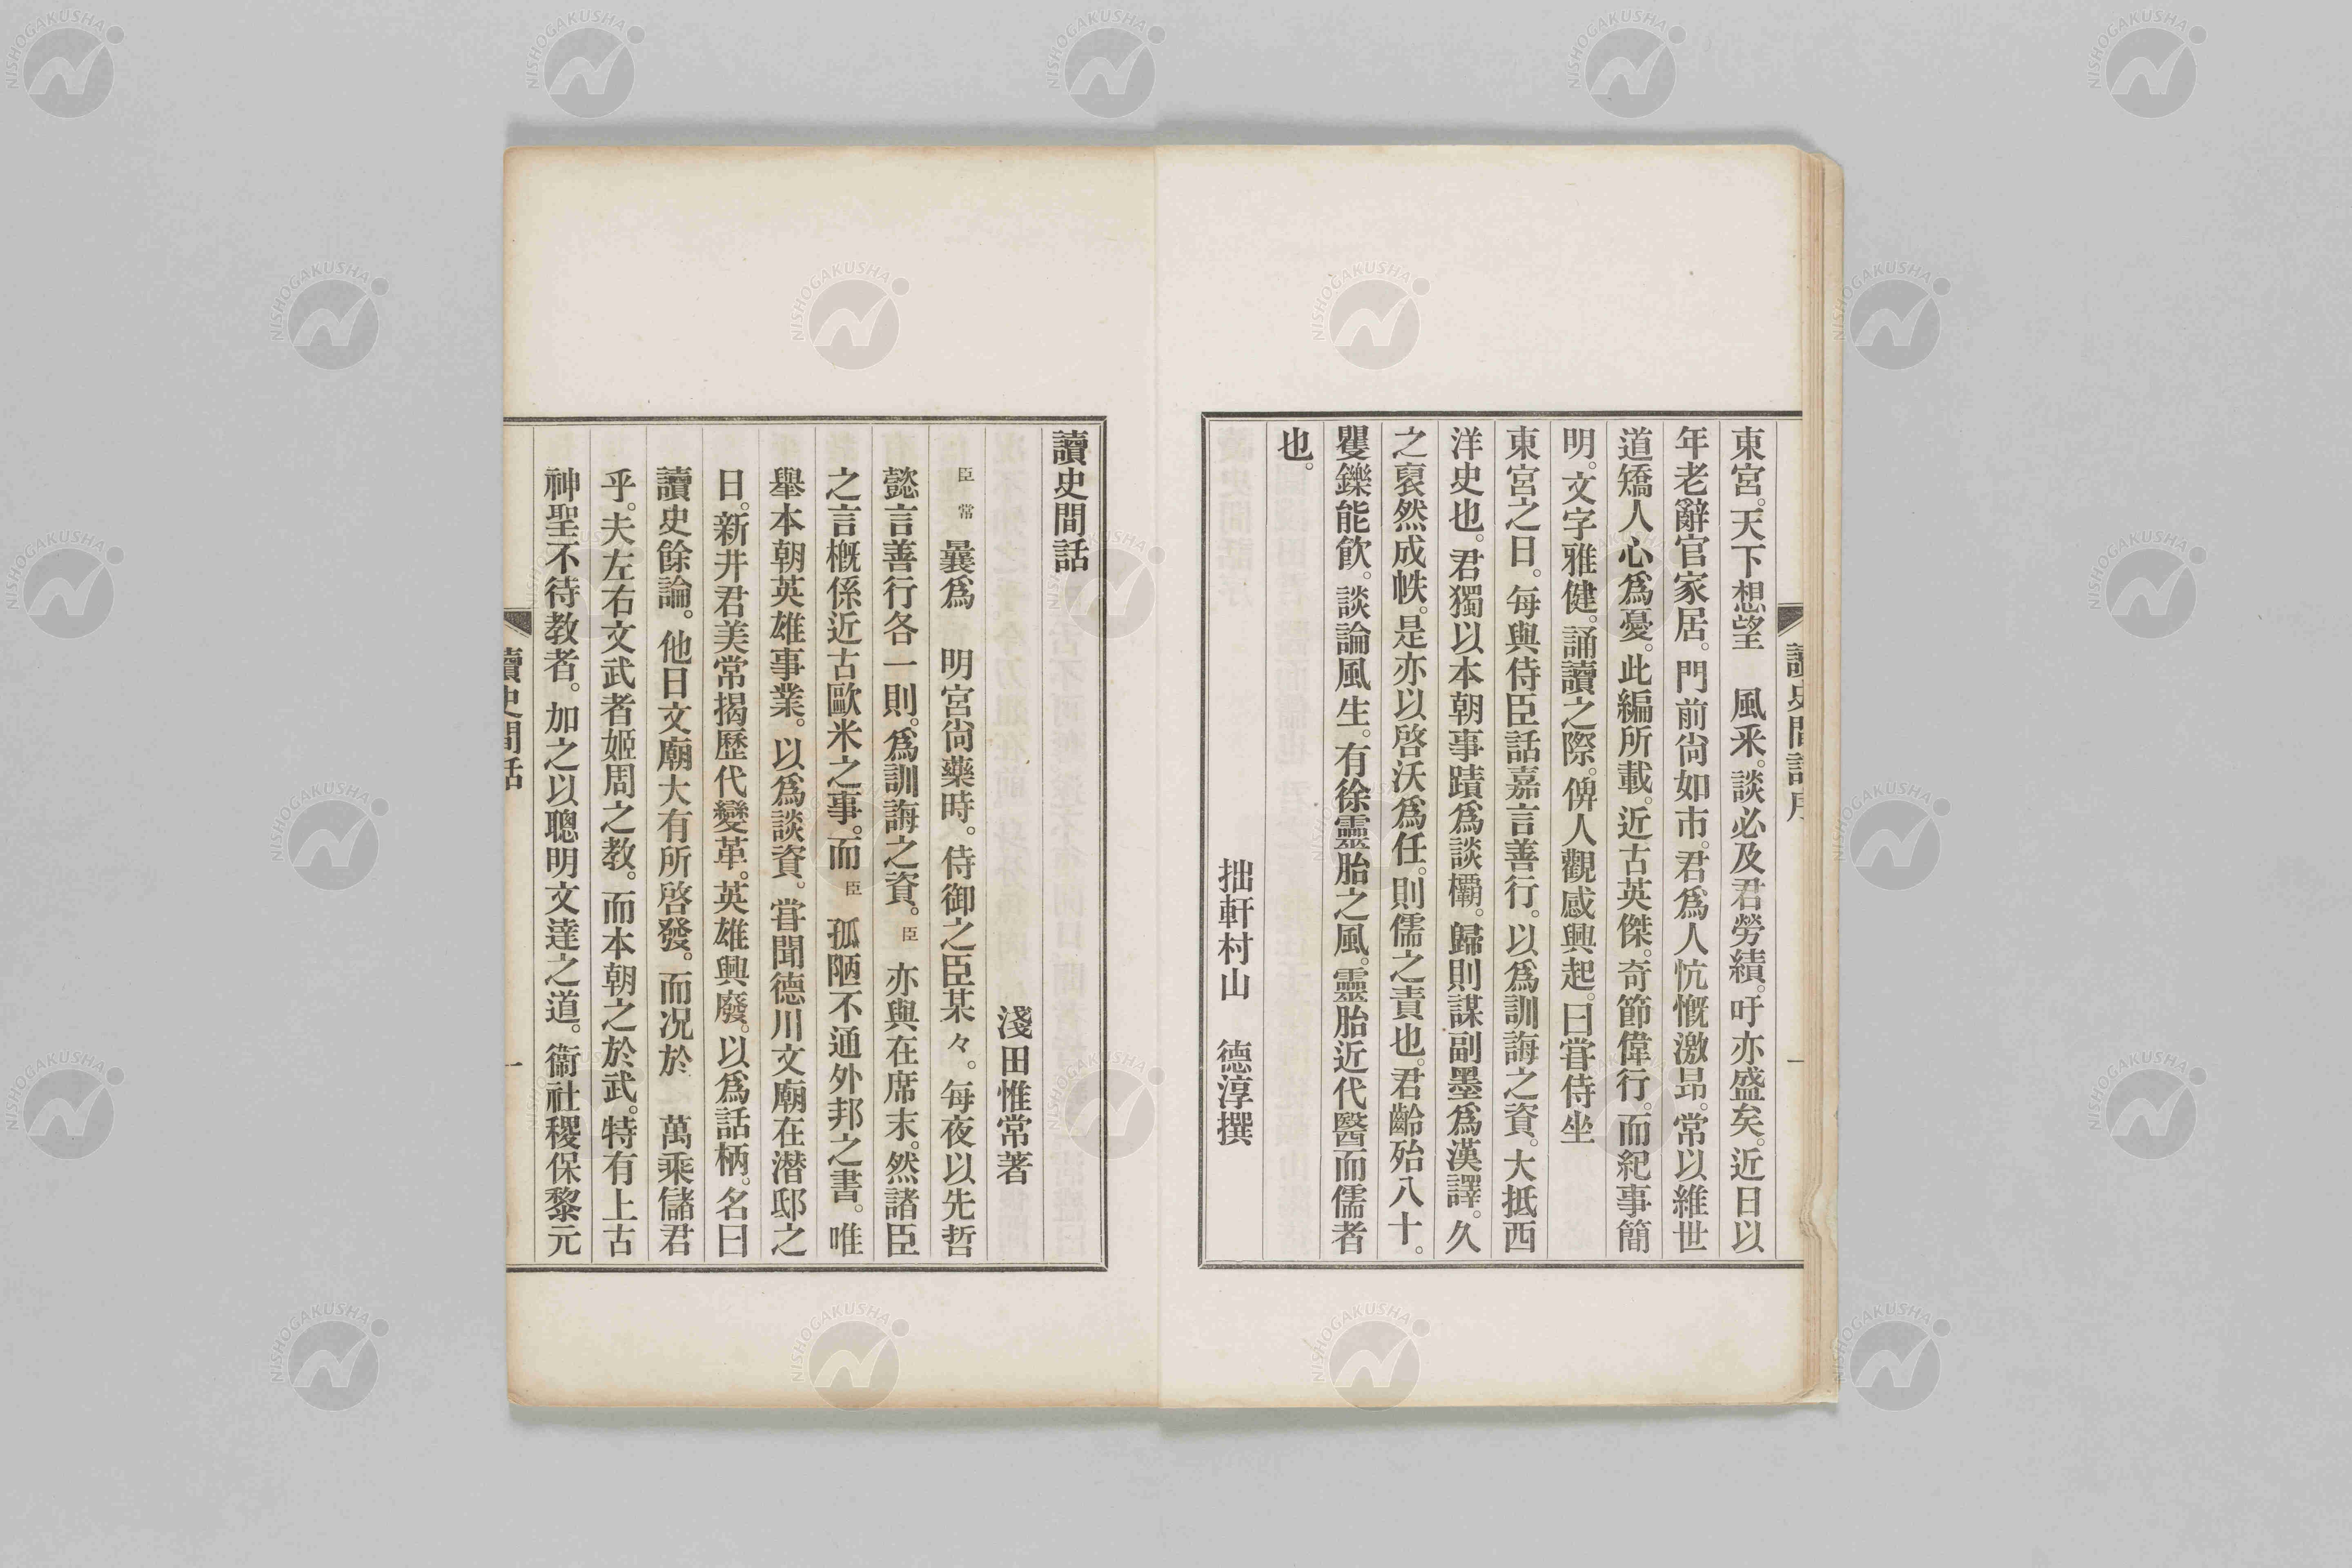 東宮。天下想望　風釆。談必及君勞績。吁亦盛矣。近日以
年老辭官家居。門前尙如市。君爲人忼慨激昂。常以維世
道矯人心爲憂。此編所載。近古英傑。奇節偉行。而紀事簡
明。文字雅健。誦讀之際。俾人觀感興起。曰甞侍坐
東宮之日。每與侍臣話嘉言善行。以爲訓誨之資。大抵西
洋史也。君獨以本朝事蹟爲談欛。歸則謀副墨爲漢譯。久
之裒然成帙。是亦以啓沃爲任。則儒之責也。君齡殆八十。
矍鑠能飮。談論風生。有徐靈胎之風。靈胎近代醫而儒者
也。
拙軒村山　德淳撰
讀史閒話
淺田惟常著
臣常曩爲　明宮尙藥時。侍御之臣某々。每夜以先哲
懿言善行各一則。爲訓誨之資。臣亦與在席末。然諸臣
之言槪係近古歐米之事。而臣孤陋不通外邦之書。唯
擧本朝英雄事業。以爲談資。甞聞德川文廟在潜邸之
日。新井君美常揭歷代變革。英雄興廢。以爲話柄。名曰
讀史餘論。他日文廟大有所啓發。而况於　萬乘儲君
乎。夫左右文武者姬周之教。而本朝之於武。特有上古
神聖不待教者。加之以聰明文達之道。衞社稷保黎元
讀史閒話
一
讀史閒話序
一
NISHOGAKUSHA